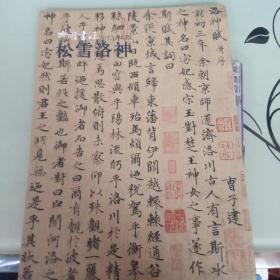 松雪洛神
洛神賦 并序
曹子建
黄初三年余朝京師還濟洛川古人有言斯水
之神名曰宓妃感宋玉對楚王神女之事遂作
斯賦其詞曰
余從京師言歸東藩背伊闕越轘轅經通谷
陵景山日既西傾車殆馬煩爾迺税駕乎蘅皋
田容與乎陽林流眄乎洛川於是精
焉思散俯則未察仰以殊觀睹一麗
畔迺援御者而告之曰爾有覿於彼者
斯若此之豔也御者對曰臣聞河洛之
神名曰宓妃然則君王之所見無迺是乎其狀若